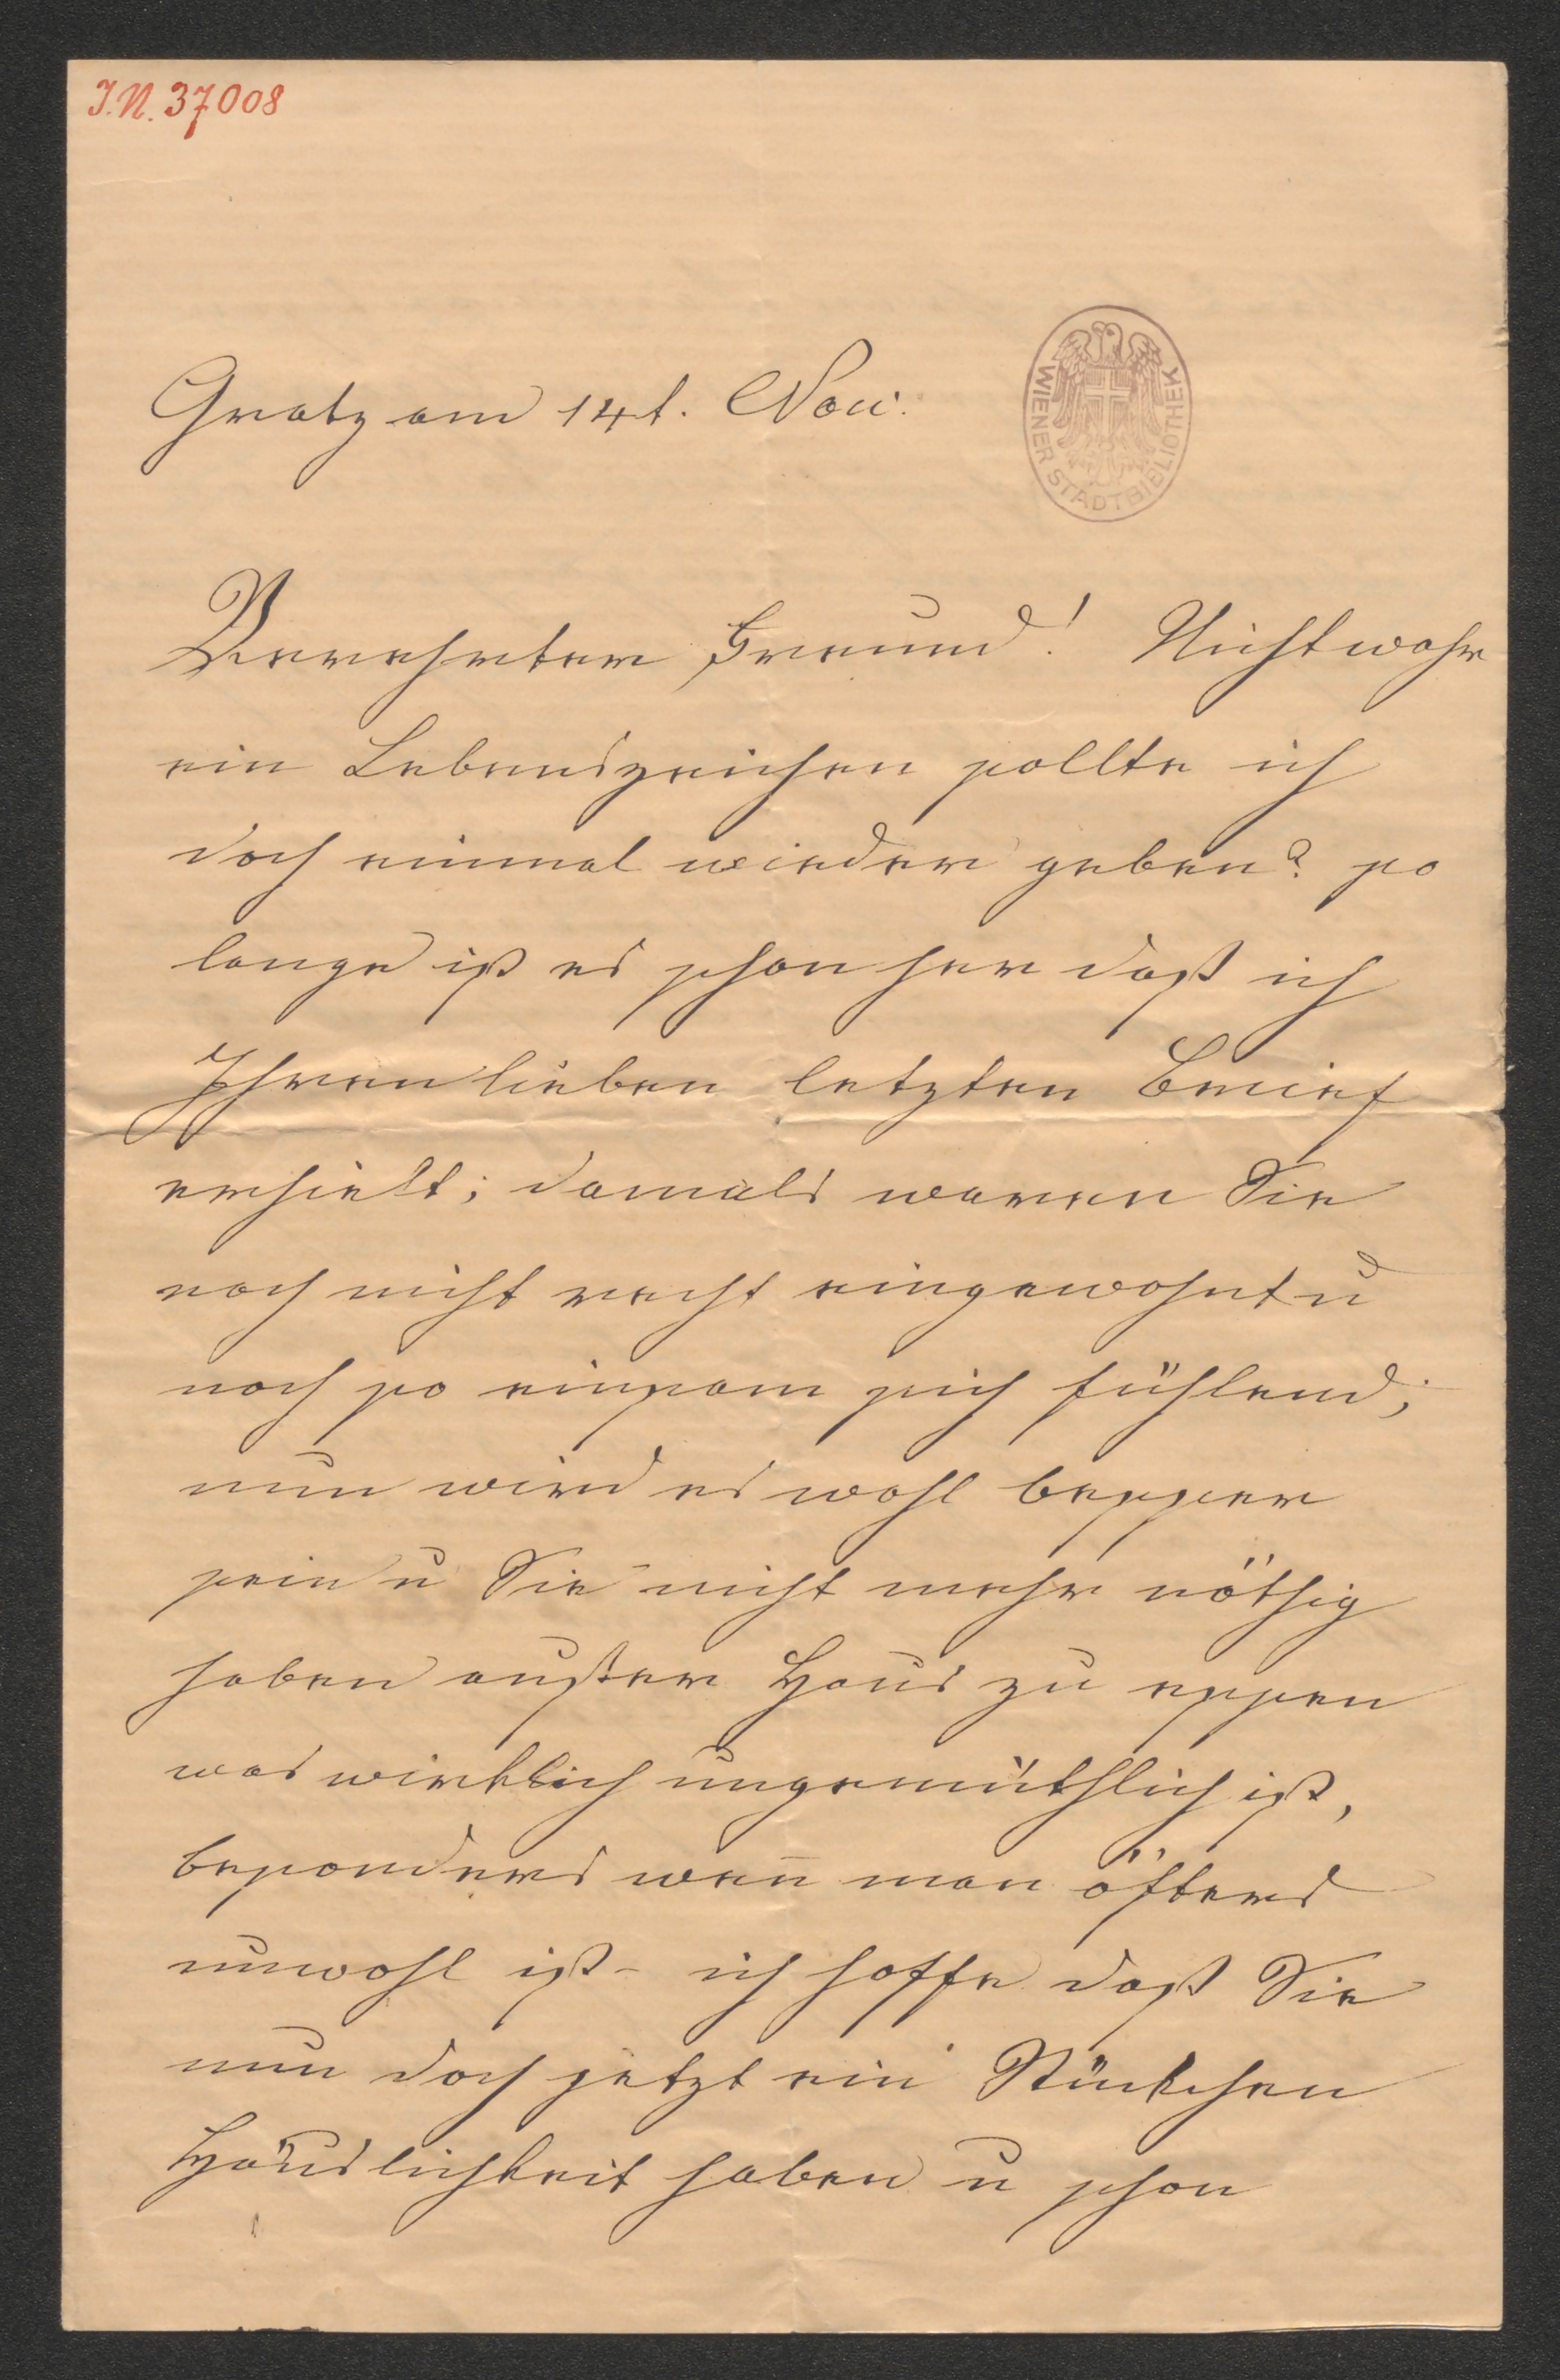 I.N. 37008
WIENER STADTBIBLIOTHEK
Gratz am 14t. Nov.
Verehrter Freund! Nicht wahr
ein Lebenszeichen sollte ich
doch einmal wieder geben? so
lange ist es schon her daß ich
Ihren lieben letzten Brief
erhielt; damals waren Sie
noch nicht recht eingewohnt u
noch so einsam sich fühlend;
nun wird es wohl besser
sein u Sie nicht mehr nöthig
haben außer Haus zu essen
was wirklich ungemüthlich ist,
besonders wen̅ man öfters
unwohl ist – ich hoffe daß Sie
nun doch jetzt ein Stückchen
Häuslichkeit haben u schon